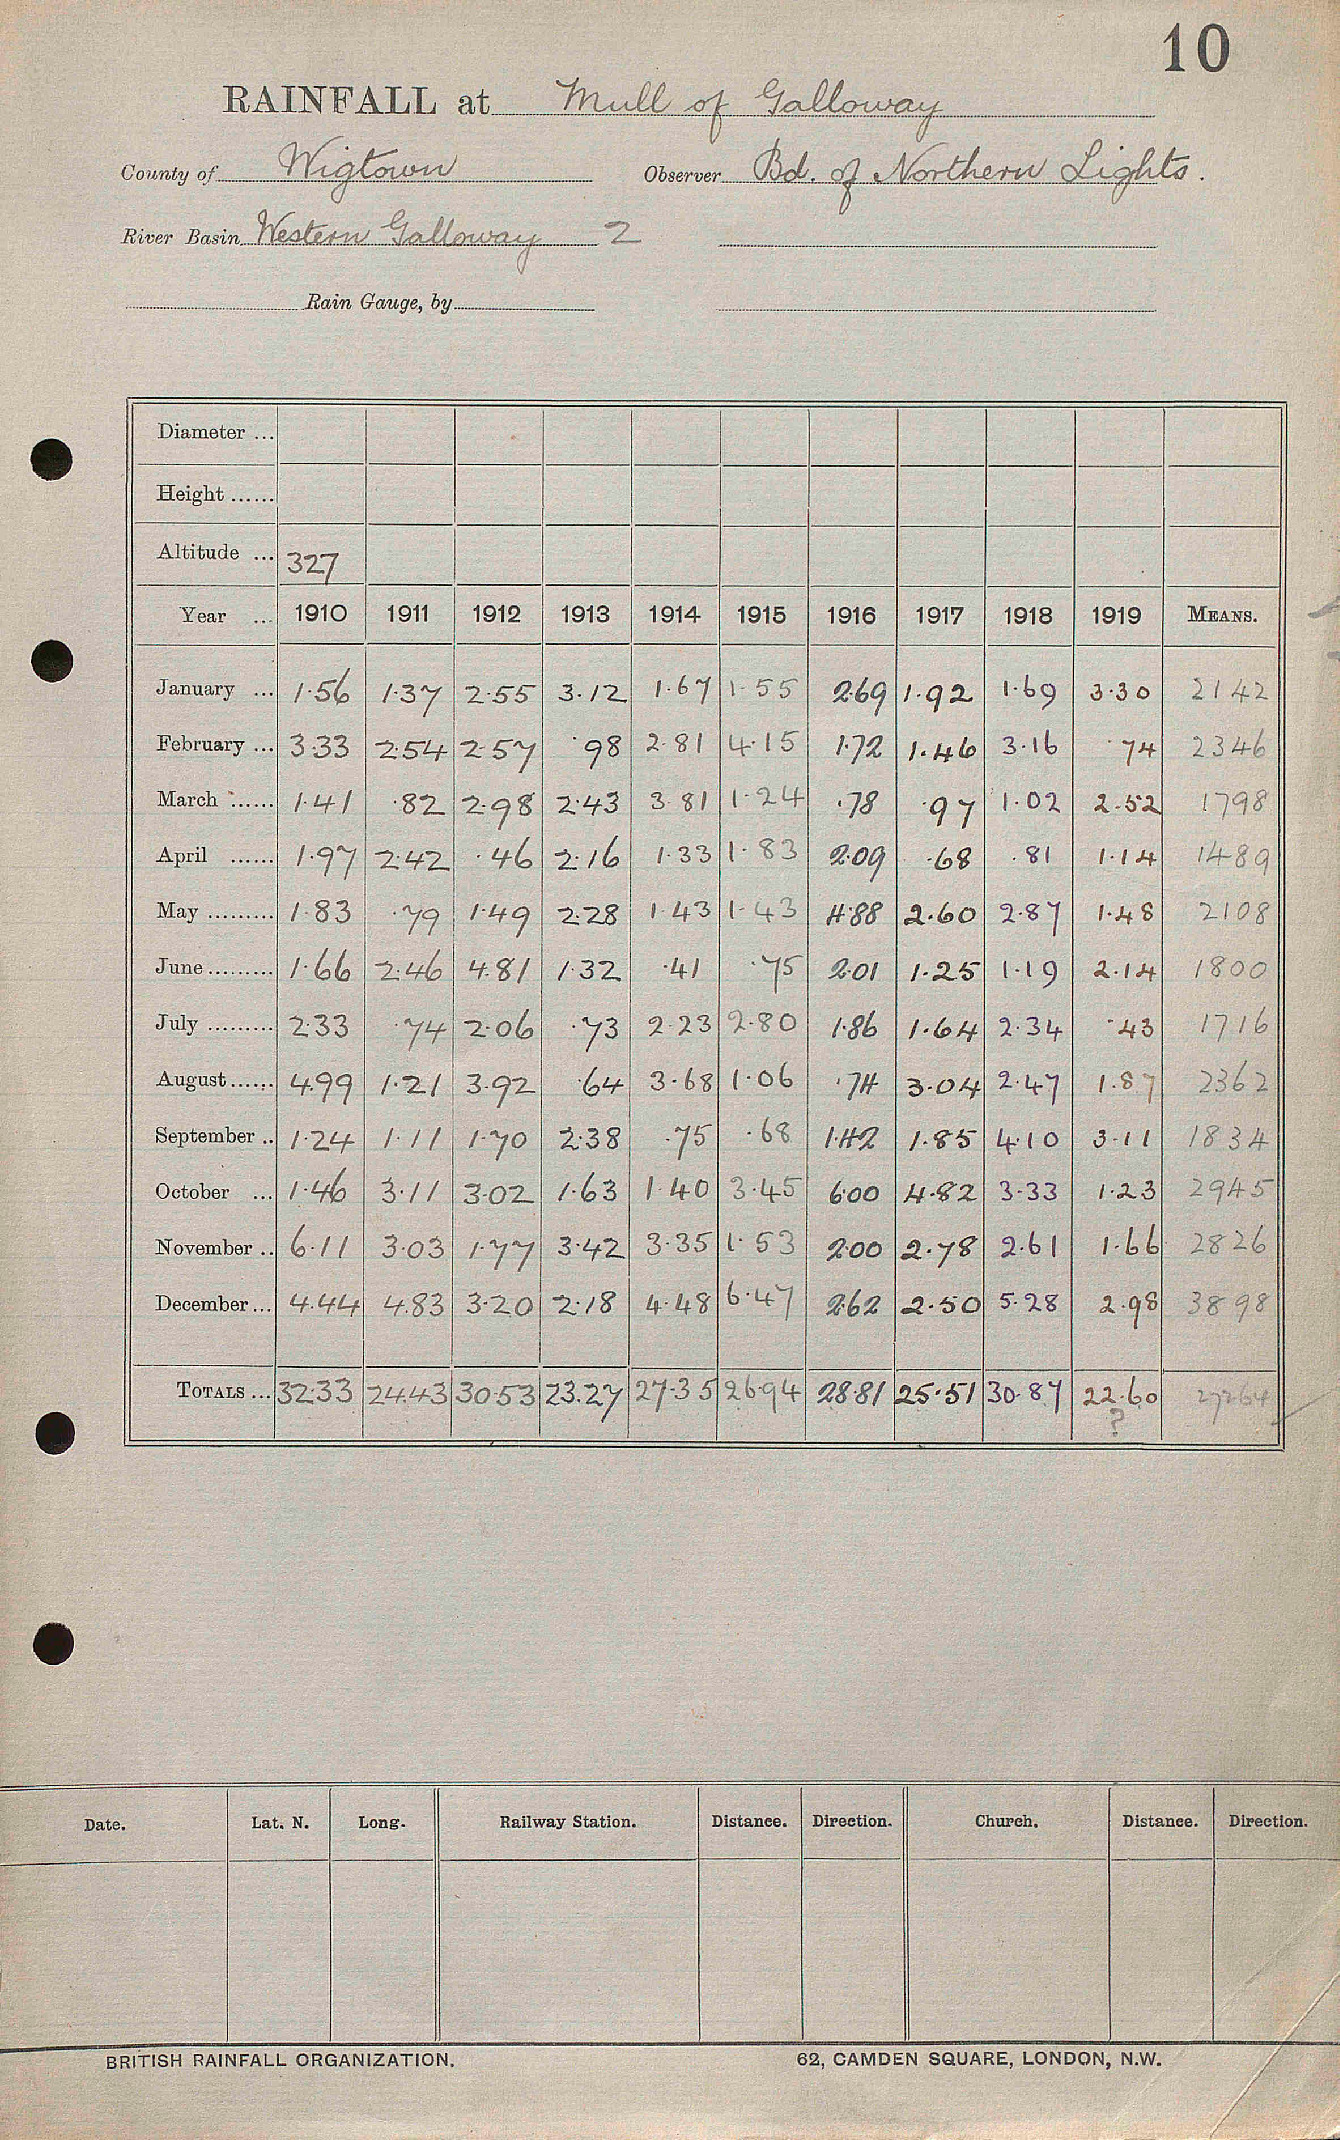 10
RAINFALL at Mull of Galloway
County of Wigtown Observer Bd. of Northern Lights.
River Basin Western Galloway 2
Rain Gauge, by
Diameter ...
Height ......
Altitude ... 327
Year ... 1910 1911 1912 1913 1914 1915 1916 1917 1918 1919 MEANS.
January ... 1.56 1.37 2.55 3.12 1.67 1.55 2.69 1.92 1.69 3.30 2142
February ... 3.33 2.54 2.57 .98 2.81 4.15 1.72 1.46 3.16 .74 2346
March ...... 1.41 .82 2.98 2.43 3.81 1.24 .78 .97 1.02 2.52 1798
April ...... 1.97 2.42 .46 2.16 1.33 1.83 2.09 .68 .81 1.14 1489
May ......... 1.83 .79 1.49 2.28 1.43 1.43 4.88 2.60 2.87 1.48 2108
June ......... 1.66 2.46 4.81 1.32 .41 .75 2.01 1.25 1.19 2.14 1800
July ......... 2.33 .74 2.06 .73 2.23 2.80 1.86 1.64 2.34 .43 1716
August ...... 4.99 1.21 3.92 .64 3.68 1.06 .74 3.04 2.47 1.87 2362
September .. 1.24 1.11 1.70 2.38 .75 .68 1.42 1.85 4.10 3.11 1834
October ... 1.46 3.11 3.02 1.63 1.40 3.45 6.00 4.82 3.33 1.23 2945
November .. 6.11 3.03 1.77 3.42 3.35 1.53 2.00 2.78 2.61 1.66 2826
December ... 4.44 4.83 3.20 2.18 4.48 6.47 2.62 2.50 5.28 2.98 3898
TOTALS ... 32.33 24.43 30.53 23.27 27.35 26.94 28.81 25.51 30.87 22.60 27264
?
Date. Lat. N. Long. Railway Station. Distance. Direction. Church. Distance. Direction.
BRITISH RAINFALL ORGANIZATION. 62, CAMDEN SQUARE, LONDON, N.W.